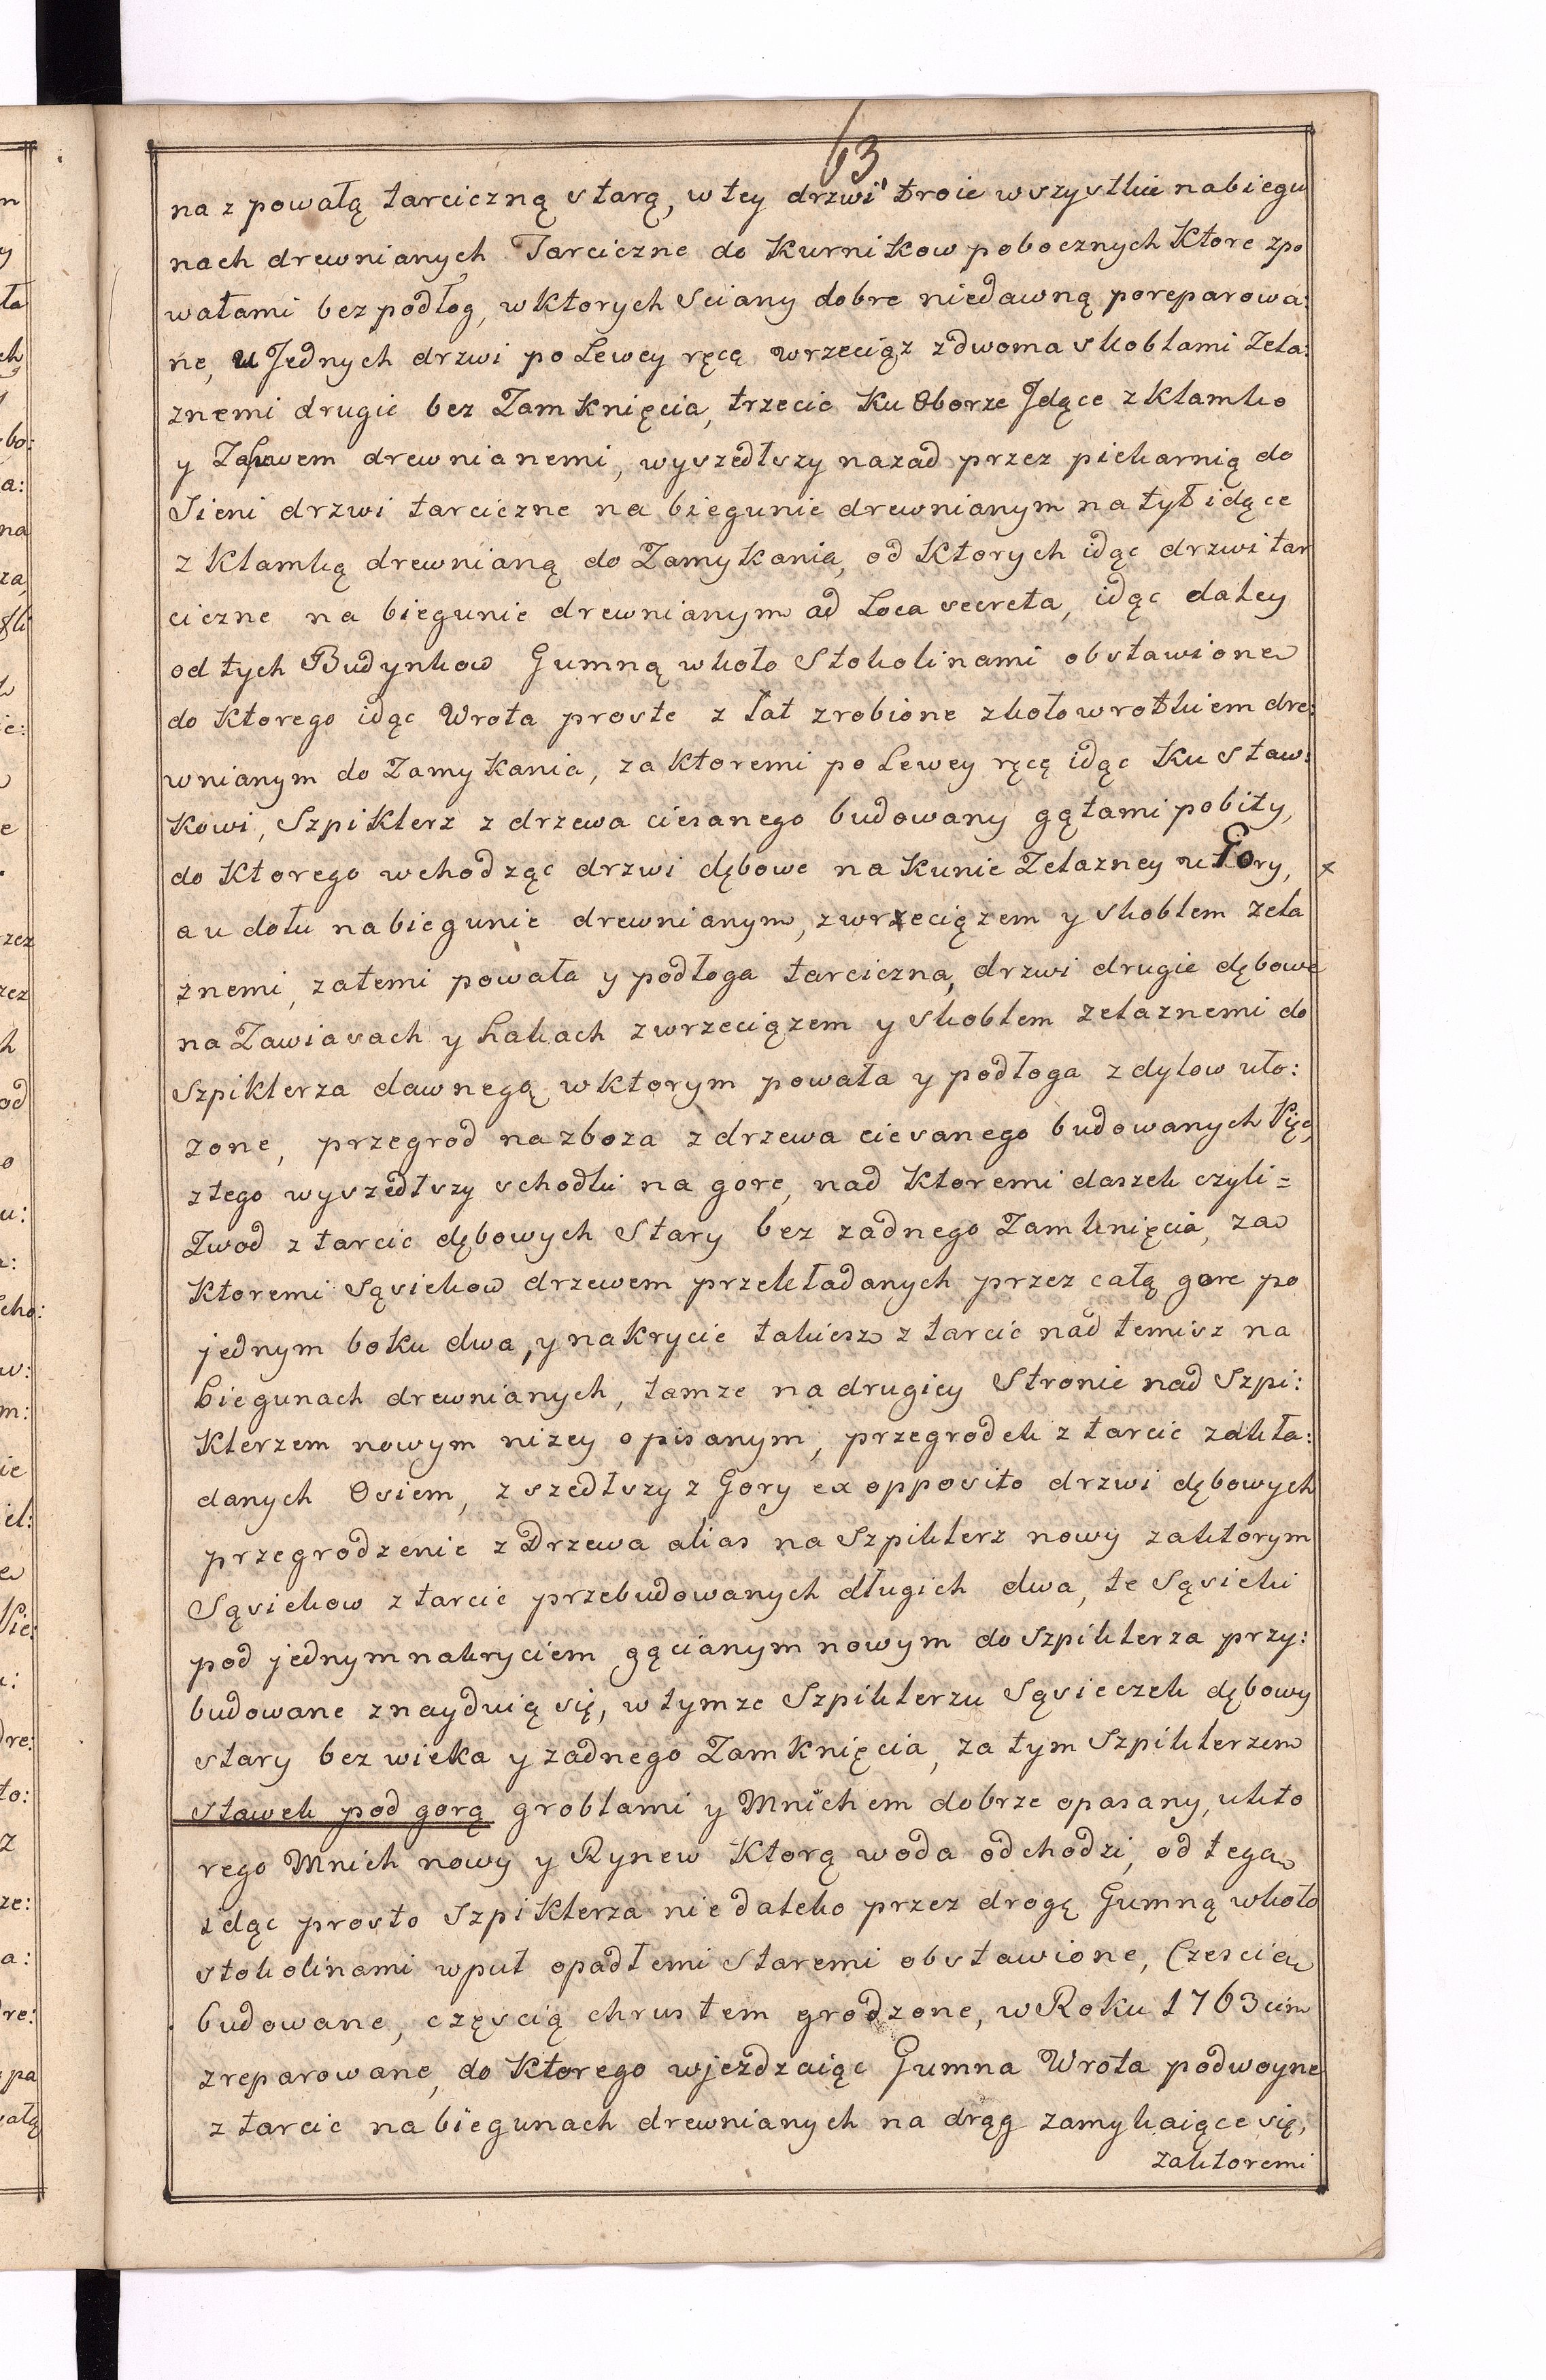 63
na z powałą tarciczną starą, w tey drzwi troie wszystkie nabiegu
nach drewnianych Tarciczne do Kurnikow pobocznych Ktore zpo
wałami bez podłog, w ktorych Sciany dobre niedawną poreparowa:
ne, u Jednych drzwi po Lewey ręcę wrzeciąz z dwoma skoblami Zela:
znemi drugie bez Zamknięcia, trzecie Ku Oborze Jdące z klamko
y Zasuwem drewnianemi, wyszedłszy nazad przez piekarnią do
Sieni drzwi tarciczne na biegunie drewnianym na tył idące
z Klamką drewnianą do Zamykania, od Ktorych idąc drzwi tar
ciczne na biegunie drewnianym ad Loca secreta, idąc daley
od tych Budynkow Gumną wkoło Stokolinami obstawione
do Ktorego idąc Wrota proste z łat zrobione z kołowrotkiem dre:
wnianym do Zamykania, za ktoremi po Lewey ręcę idąc Ku staw:
kowi, Szpiklerz z drzewa ciesanego budowany gątami pobity,
do Ktorego wchodząc drzwi dębowe na Kunie Zelazney u Gory, x
a u dołu na biegunie drewnianym, z wrzeciązem y skoblem zela
znemi, za temi powała y podłoga tarciczna, drzwi drugie dębowe
na Zawiasach y hakach z wrzeciązem y skoblem zelaznemi do
Szpiklerza dawnegą w ktorym powała y podłoga z dylow uło:
zone, przegrod na zboza z drzewa ciesanego budowanych Pięc,
z tego wyszedłszy schodki na gore, nad Ktoremi daszek czyli =
Zwod z tarcic dębowych Stary bez zadnego Zamknięcia, za
Ktoremi Sąsiekow drzewem przekładanych przez całą gore po
jednym boku dwa, y nakrycie takiesz z tarcic nad temisz na
biegunach drewnianych, tamze na drugiey Stronie nad Szpi:
Klerzem nowym nizey opisanym, przegrodek z tarcic zakła:
danych Osiem, z szedłszy z Gory ex opposito drzwi dębowych
przegrodzenie z Drzewa alias na Szpiklerz nowy za ktorym
Sąsiekow z tarcic przebudowanych długich dwa, te Sąsieki
pod jednym nakryciem gącianym nowym do Szpiklerza przy:
budowane znayduią się, w tymze Szpiklerzu Sąsieczek dębowy
stary bez wieka y zadnego Zamknięcia, za tym Szpiklerzem
stawek pod gorą groblami y Mnichem dobrze opasany, u kto
rego Mnich nowy y Rynew Ktorą woda odchodzi, od tega
idąc prosto Szpiklerza nie daleko przez drogę Gumną wkoło
stokolinami wpuł opadłemi Staremi obstawione, Czescią
budowane, częscią chrustem grodzone, w Roku 1763cim
zreparowane, do Ktorego wjezdzaiąc Gumna Wrota podwoyne
z tarcic na biegunach drewnianych na drąg zamykaiące się,
za ktoremi